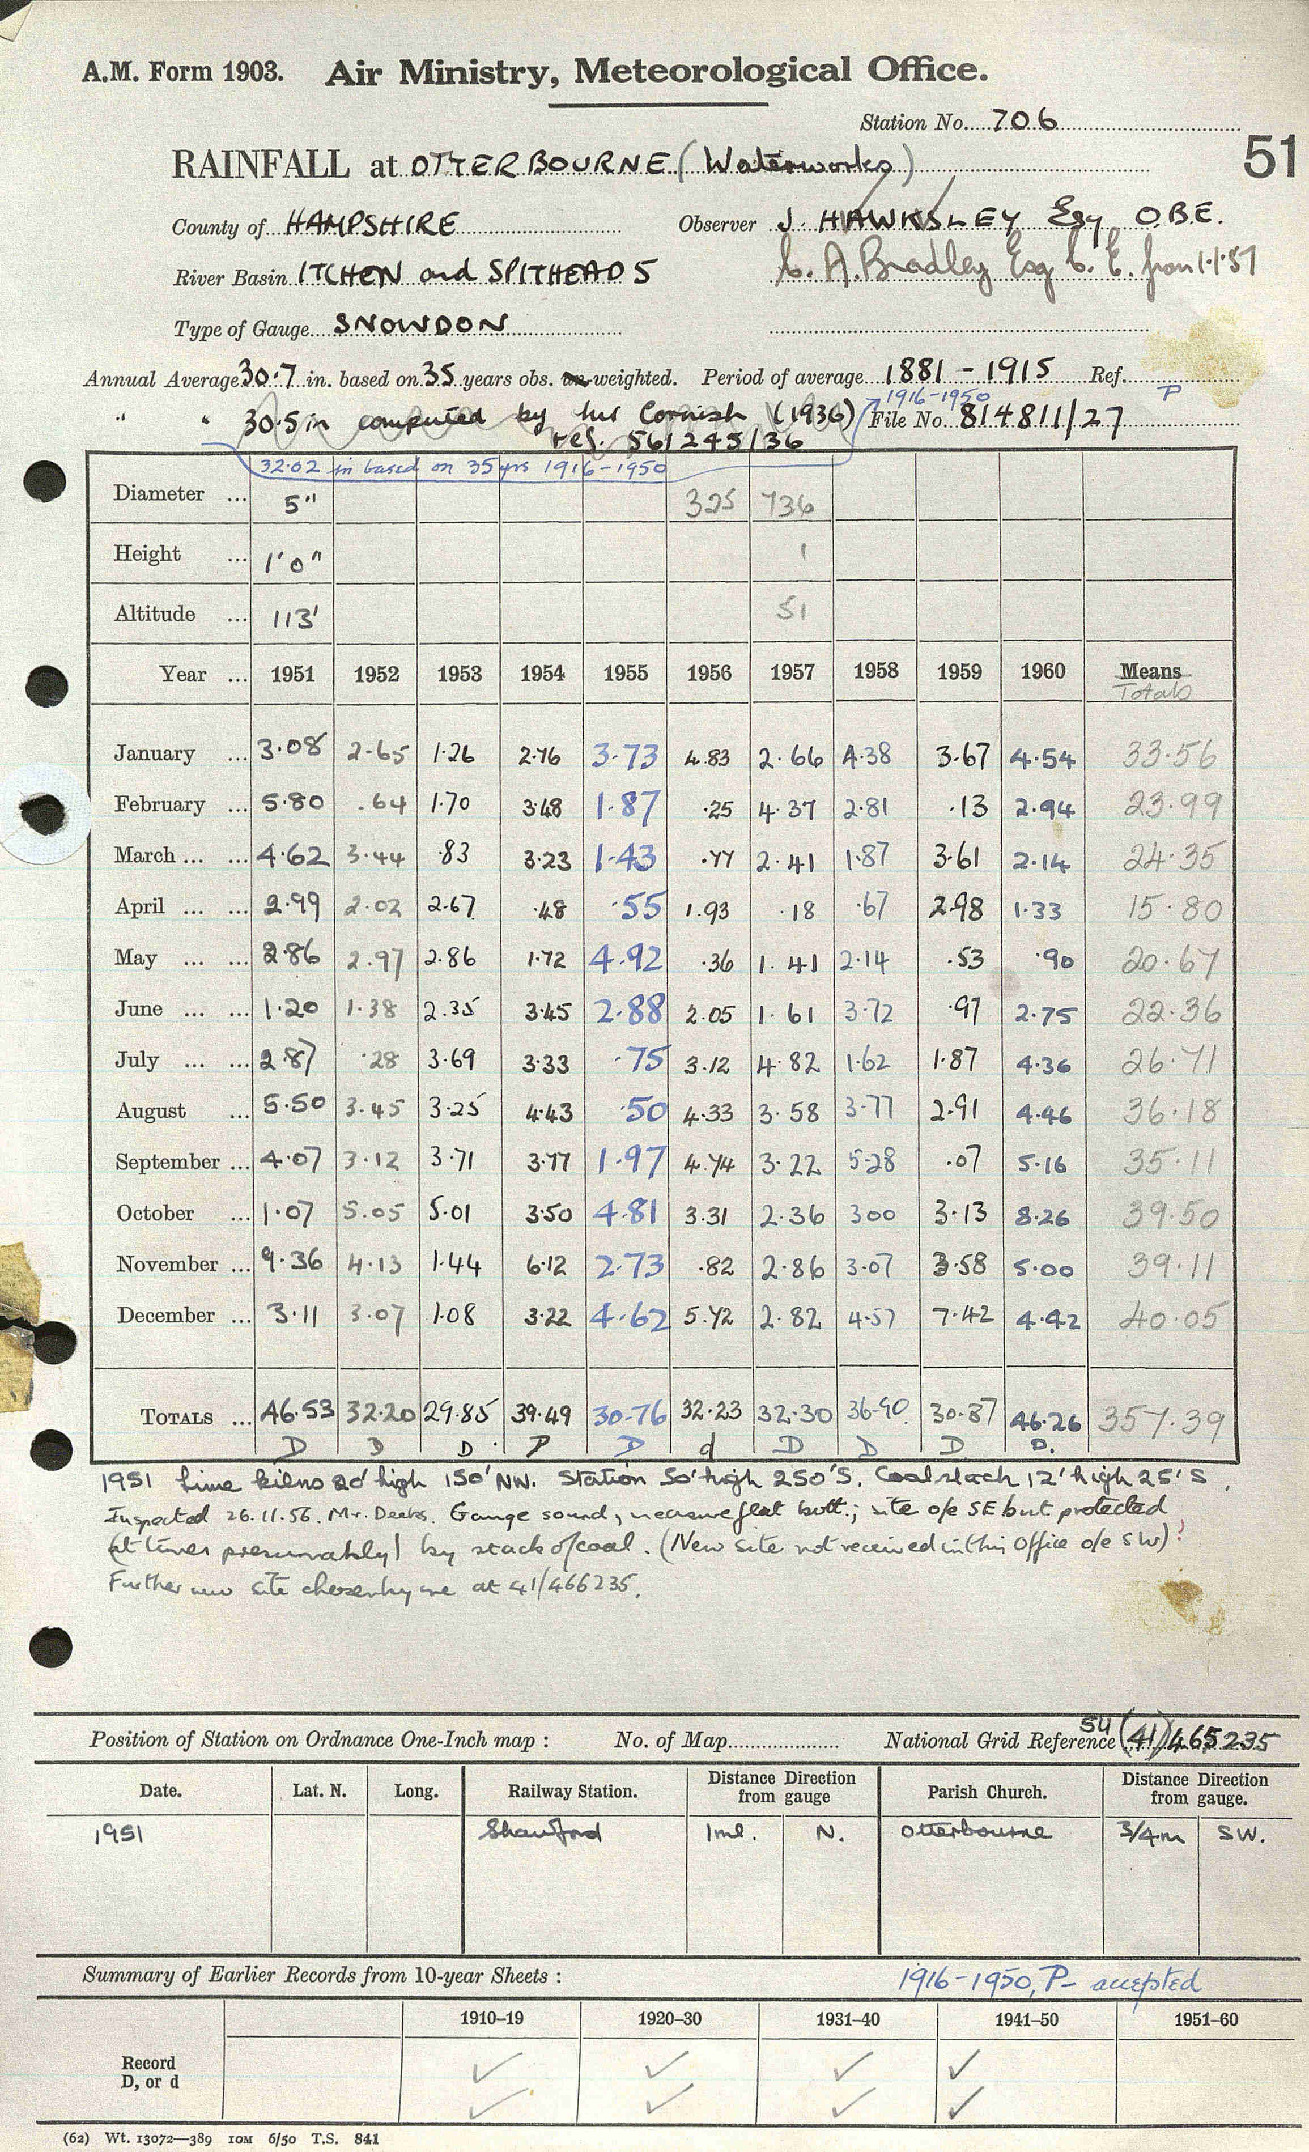 A.M. Form 1903. Air Ministry, Meteorological Office.
Station No. 706
51
RAINFALL at OTTERBOURNE (Waterworks)
County of HAMPSHIRE Observer J. HAWKSLEY Esq O.B.E.
River Basin ITCHEN and SPITHEAD 5 C. A. Bradley Esq C. E. from 1.1.57
Type of Gauge SNOWDON
Annual Average 30.7 in. based on 35 years obs. un-weighted. Period of average 1881 - 1915 Ref.
1916-1950 P
" " 30.5 in computed by Cornish (1936) File No 814811/27
ref. 561245/36
32.02 in based on 35 yrs 1916-1950
Diameter ... 5" 325 736
Height ... 1' 0" 1
Altitude ... 113' 51
Year ... 1951 1952 1953 1954 1955 1956 1957 1958 1959 1960 Means
Totals
January ... 3.08 2.65 1.26 2.76 3.73 4.83 2.66 4.38 3.67 4.54 33.56
February ... 5.80 .64 1.70 3.48 1.87 .25 4.37 2.81 .13 2.94 23.99
March ... ... 4.62 3.44 .83 3.23 1.43 .77 2.41 1.87 3.61 2.14 24.35
April ... ... 2.99 2.02 2.67 .48 .55 1.93 .18 .67 2.98 1.33 15.80
May ... ... 2.86 2.97 2.86 1.72 4.92 .36 1.41 2.14 .53 .90 20.67
June ... ... 1.20 1.38 2.35 3.45 2.88 2.05 1.61 3.72 .97 2.75 22.36
July ... ... 2.87 .28 3.69 3.33 .75 3.12 4.82 1.62 1.87 4.36 26.71
August ... 5.50 3.45 3.25 4.43 .50 4.33 3.58 3.77 2.91 4.46 36.18
September ... 4.07 3.12 3.71 3.77 1.97 4.74 3.22 5.28 .07 5.16 35.11
October ... 1.07 5.05 5.01 3.50 4.81 3.31 2.36 3.00 3.13 8.26 39.50
November ... 9.36 4.13 1.44 6.12 2.73 .82 2.86 3.07 3.58 5.00 39.11
December ... 3.11 3.07 1.08 3.22 4.62 5.72 2.82 4.57 7.42 4.42 40.05
TOTALS ... 46.53 32.20 29.85 39.49 30.76 32.23 32.30 36.90 30.87 46.26 357.39
D D D P D d D D D D.
1951 Lime kilns 20' high 150' NW. Station 50' high 250' S. Coal stack 12' high 25' S.
Inspected 26.11.56. Mr. Deeks. Gauge sound, measure flat bott.; site o/e SE but protected
(at times presumably) by stack of coal. (New site not received in this Office o/e SW)!
Further new site chosen by me at 41/466235.
Position of Station on Ordnance One-Inch map : No. of Map National Grid Reference SU (41) 465235
Date. Lat. N. Long. Railway Station. Distance from gauge Direction Parish Church. Distance from gauge. Direction
1951 Shawford 1 ml. N. Otterbourne 3/4 m SW.
Summary of Earlier Records from 10-year Sheets : 1916-1950, P- accepted
1910–19 1920–30 1931–40 1941–50 1951–60
Record ✓ ✓ ✓ ✓
D, or d ✓ ✓ ✓ ✓
(62) Wt. 13072—389 10M 6/50 T.S. 841